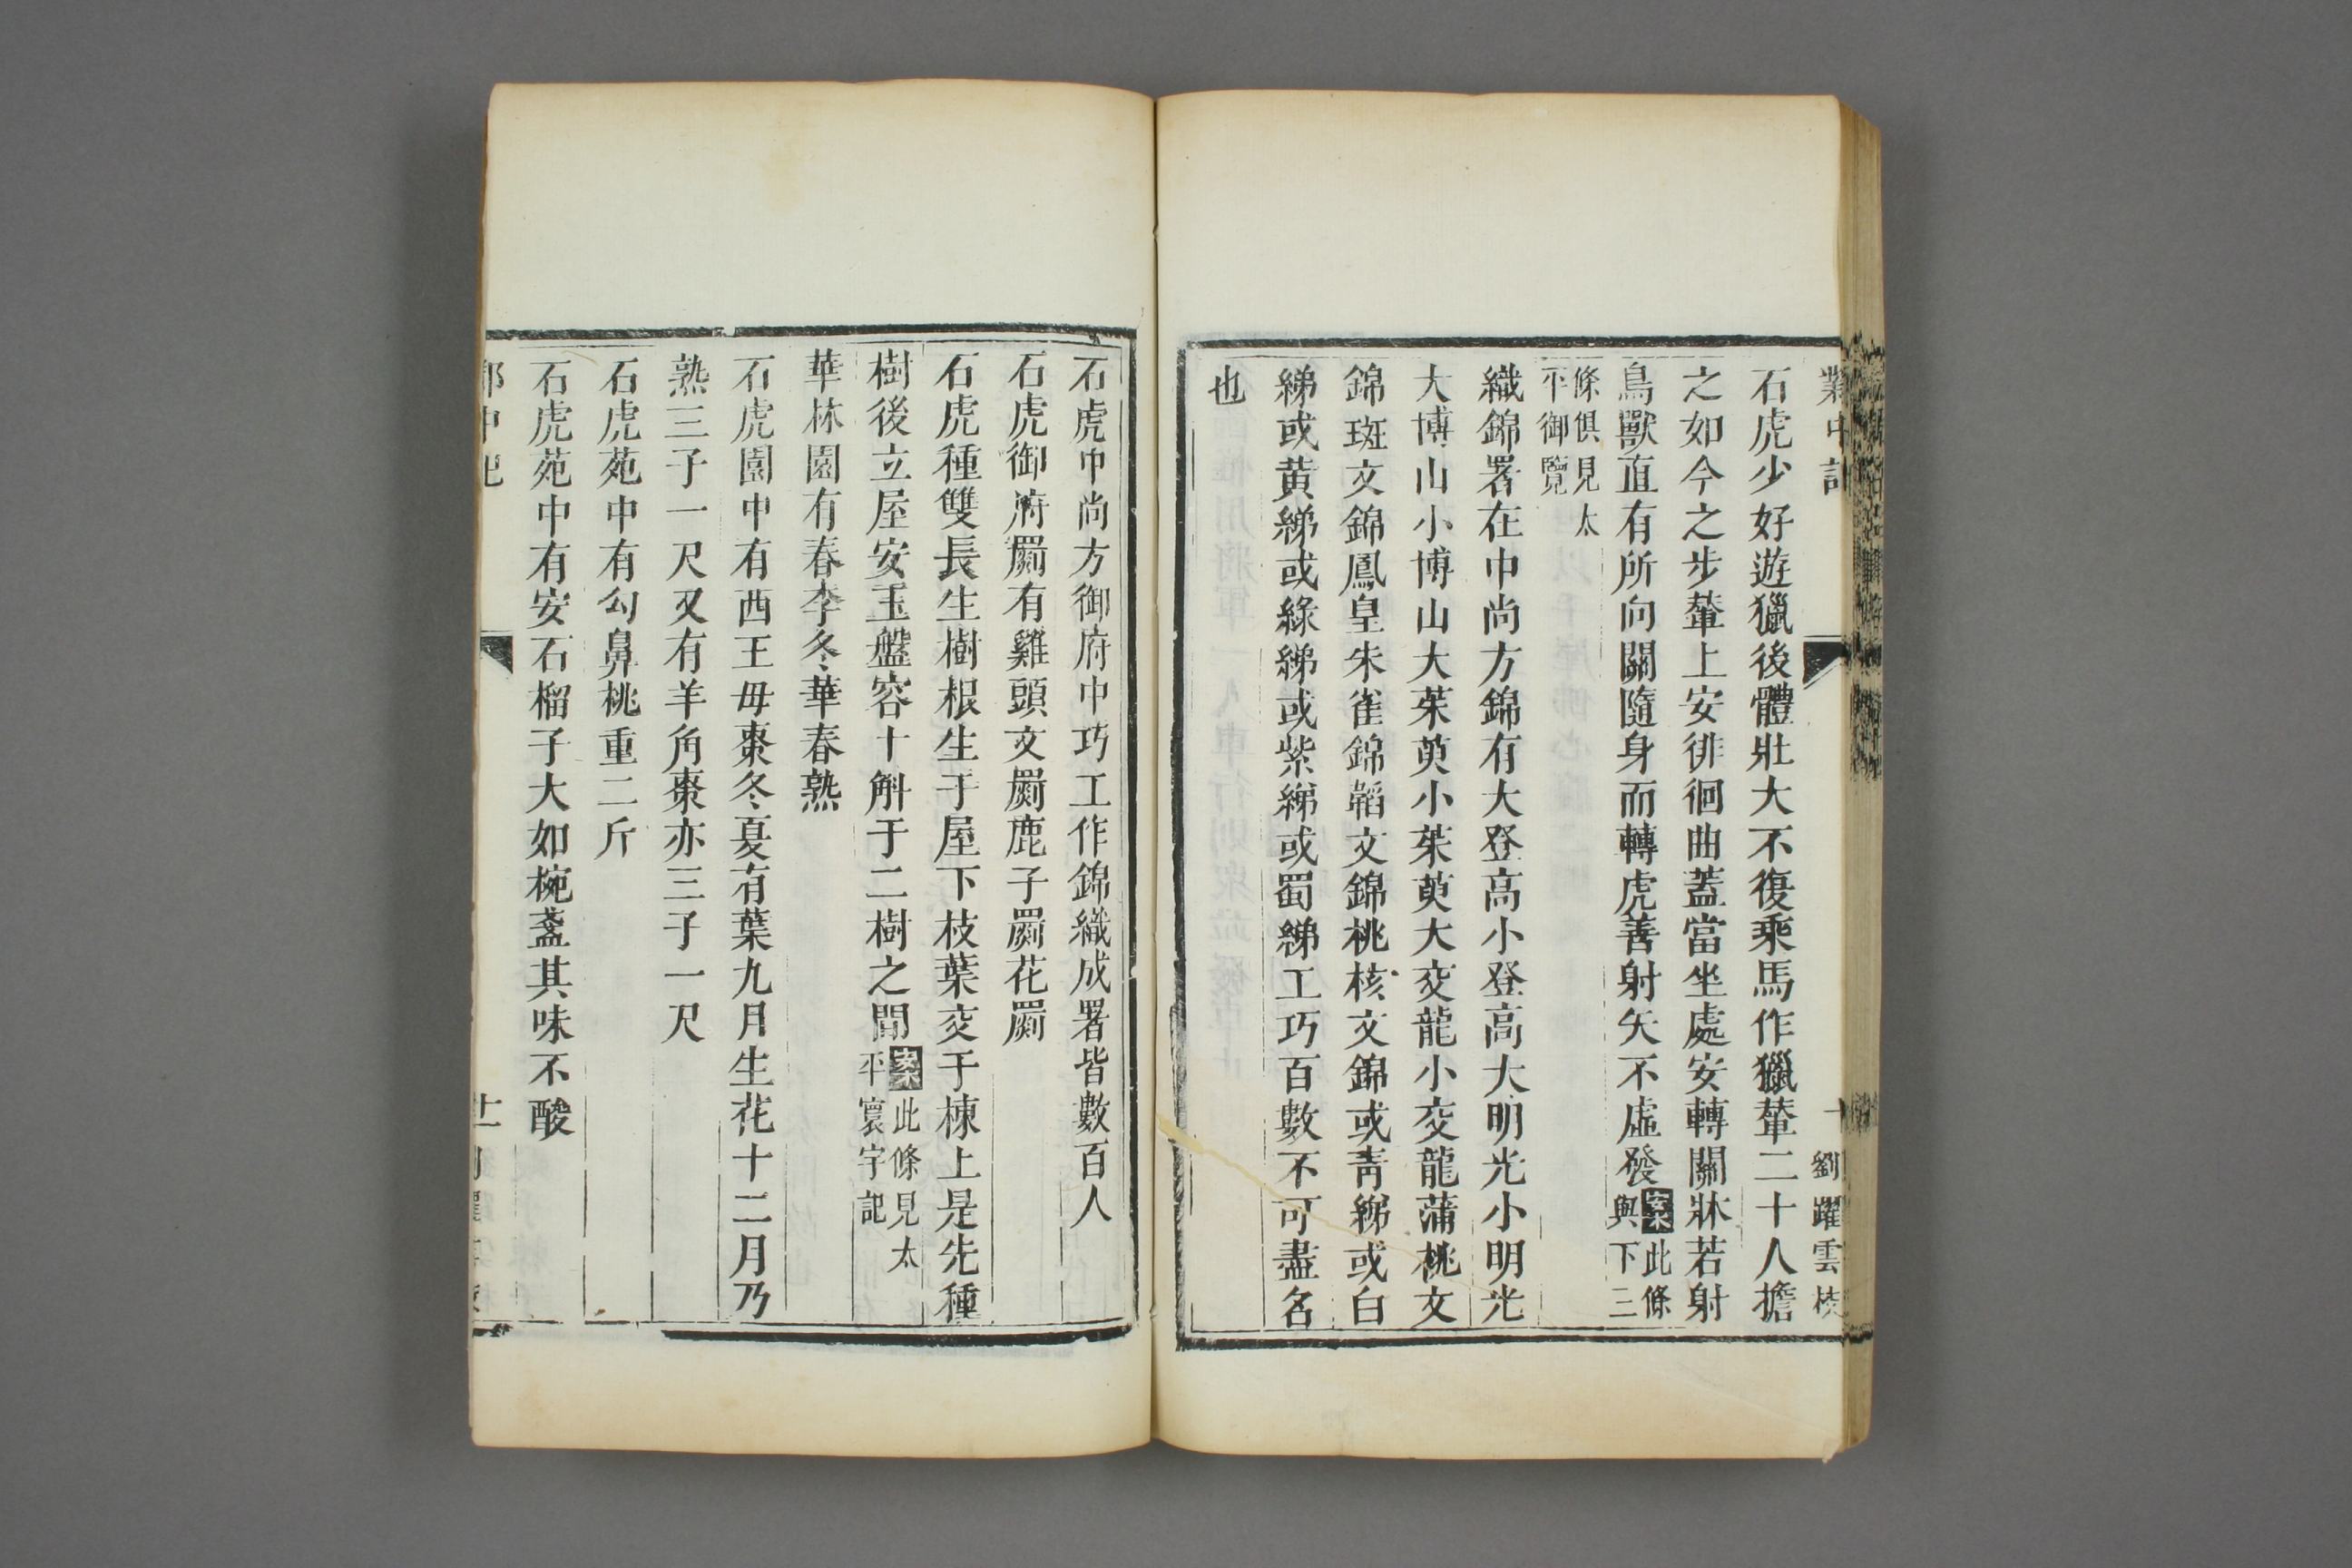 鄴中記
十
劉躍雲校
石虎少好遊獵後體壯大不復乘馬作獵輦二十人擔
之如今之步輦上安徘徊曲蓋當坐處安轉關牀若射
鳥獸直有所向關隨身而轉虎善射矢不虛發案此條
與下三
條俱見太
平御覽
織錦署在中尚方錦有大登高小登高大明光小明光
大博山小博山大茱萸小茱萸大交龍小交龍蒲桃文
錦斑文錦鳳皇朱雀錦韜文錦桃核文錦或青綈或白
綈或黃綈或綠綈或紫綈或蜀綈工巧百數不可盡名
也
石虎中尚方御府中巧工作錦織成署皆數百人
石虎御府罽有雞頭文罽鹿子罽花罽
石虎種雙長生樹根生于屋下枝葉交于棟上是先種
樹後立屋安玉盤容十斛于二樹之間案此條見太
平寰宇記
華林園有春李冬華春熟
石虎園中有西王母棗冬夏有葉九月生花十二月乃
熟三子一尺又有羊角棗亦三子一尺
石虎苑中有勾鼻桃重二斤
石虎苑中有安石榴子大如椀盞其味不酸
中記
十一